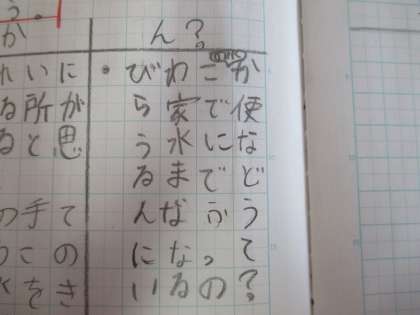 か
いに
る所が
ると思
の手て
この
をき
ん?
・びわこか
ら家で便
う水にな
るまでど
んなふう
になって
いるの?